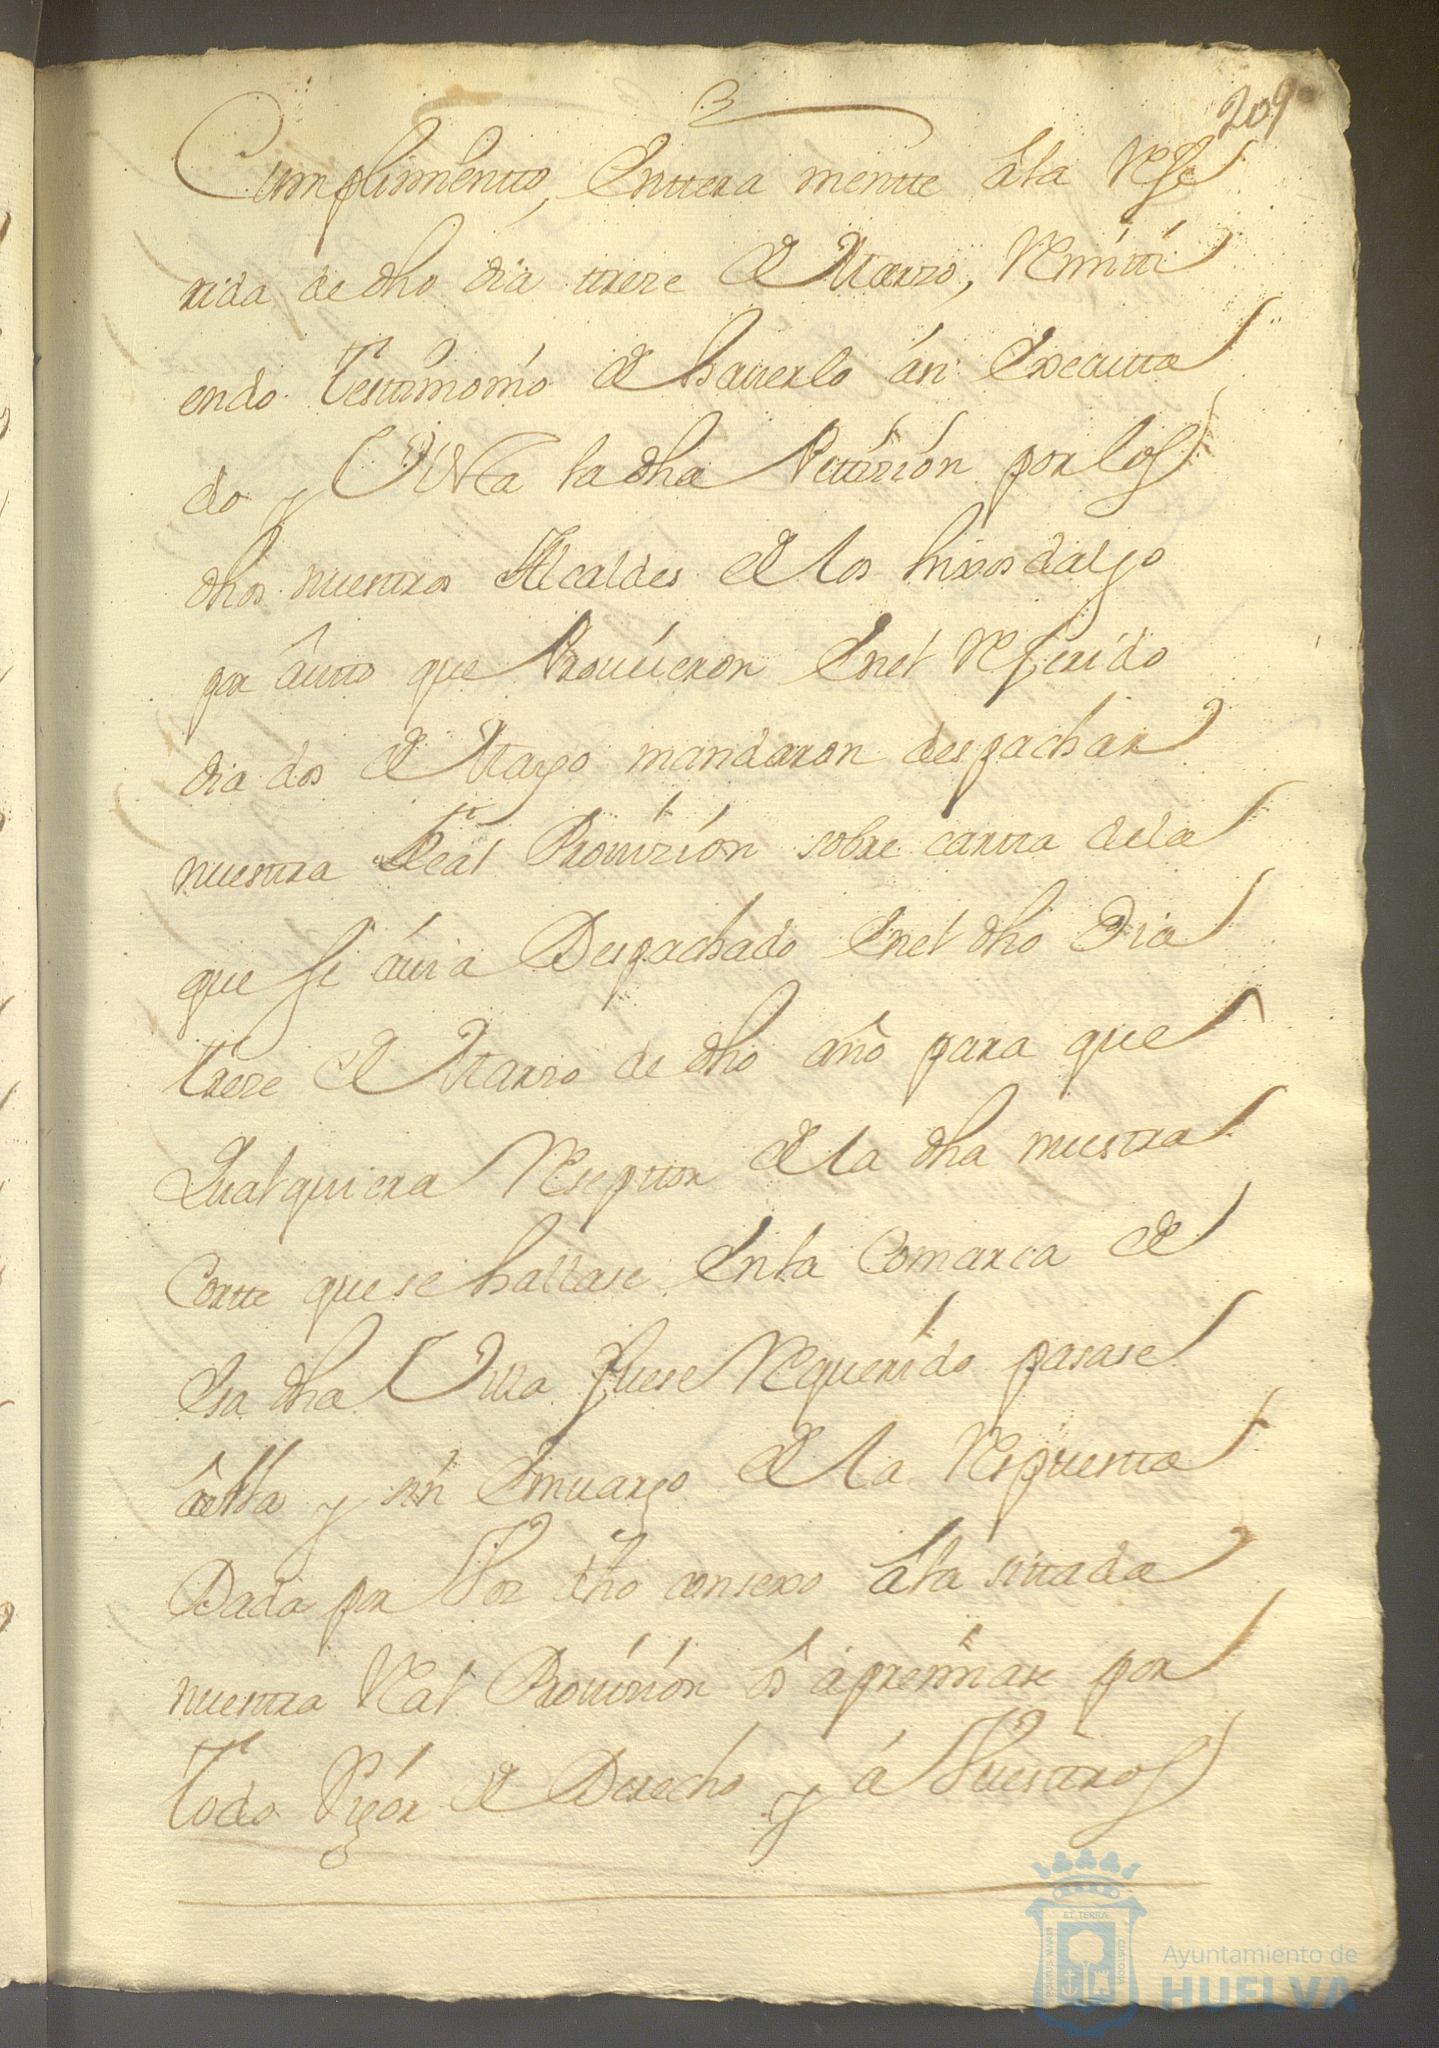 3
209
Cumplimentto, Entera mentte a la Refe
rida de dho dia treze de Marzo, Remiti
endo testimonio de hauerlo asi Executta
do y Vista la dha Pettizion por los
dhos nuestros Alcaldes de los hixosdalgo
por autto que Prouieron En el Referido
dia dos de Mayo mandaron despachar
nuestra Real Prouizion sobre cartta de la
que se auia Despachado En el dho Dia
treze de Marzo de dho año para que
Qualquiera Reseptor de la dha nuestra
Cortte que se hallase En la Comarca de
Esa dha Villa fuese Requerido pasase
a ella y sin Emuargo de la Respuesta
Dada por Vos dho consexo a la sittada
nuestra Real Prouision os apremiase por
todo Rigor de Derecho y a Vuestros
ET TERRÆ
CUSTODIA
Ayuntamiento de
HUELVA